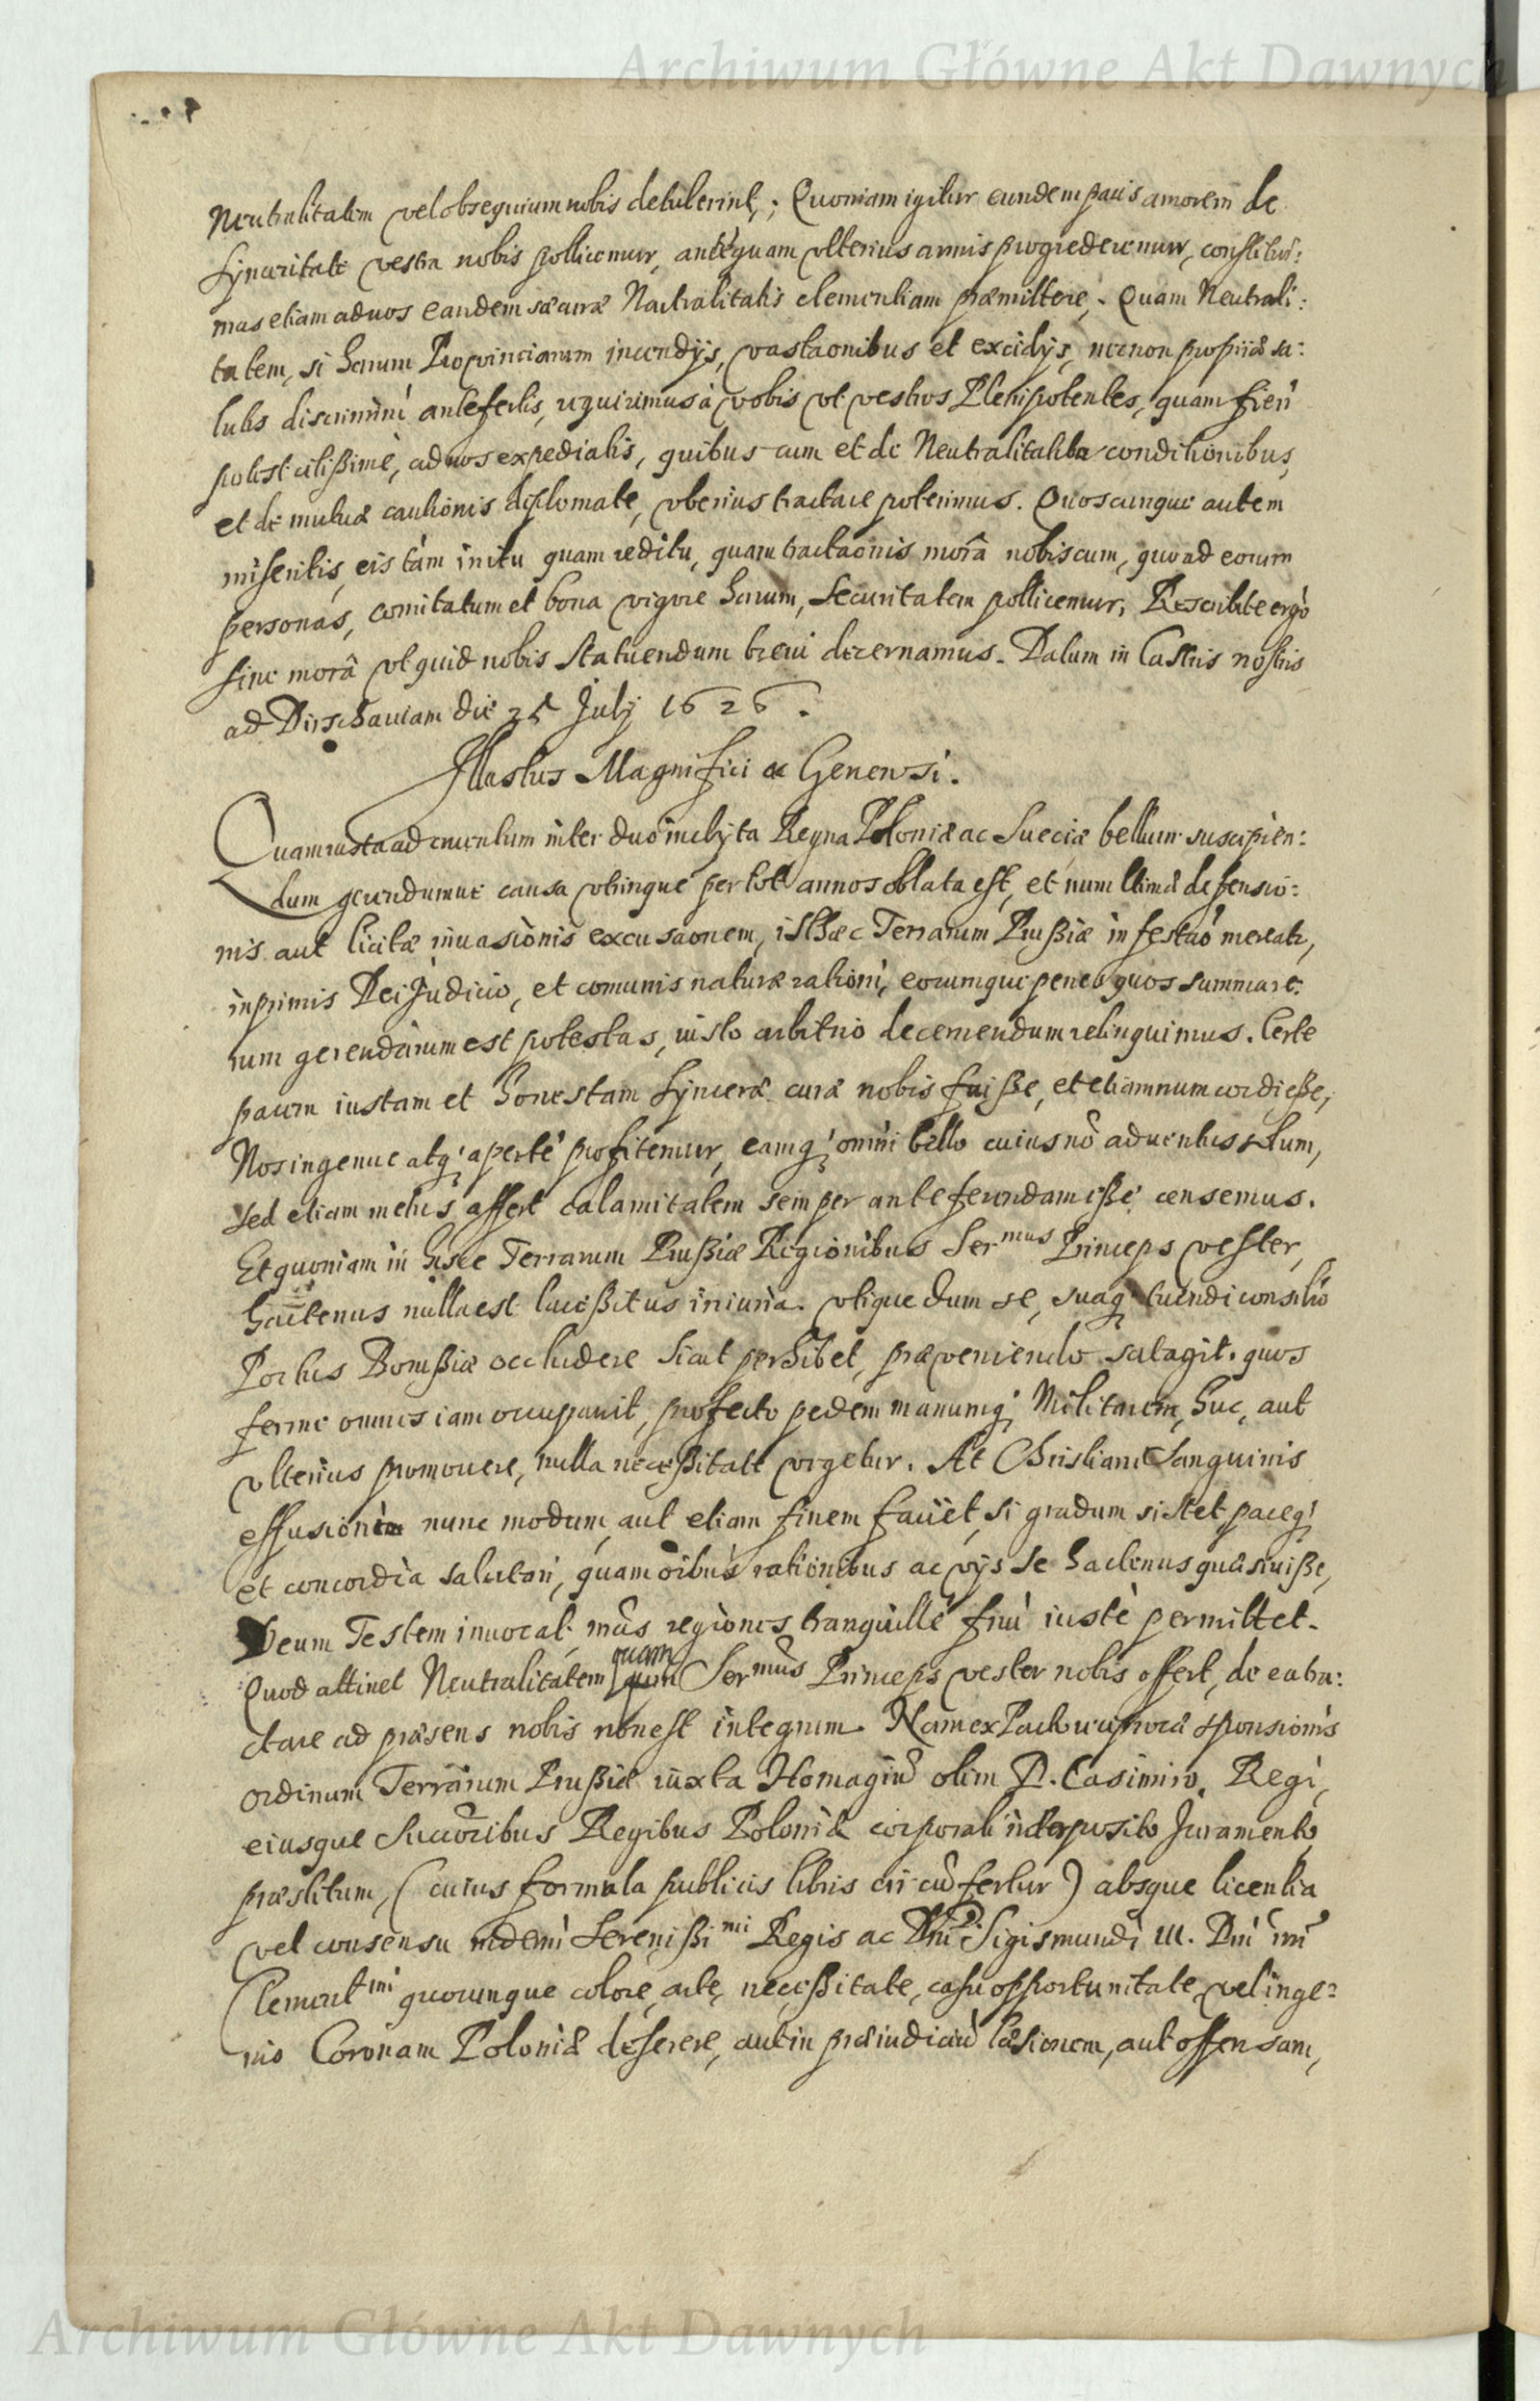 Archiwum Główne Akt Dawnych
Neutralitatem vel obsequium nobis detulerint; Quoniam igitur eundem pacis amorem de
synceritate vestra nobis pollicemur, antequam ulterius armis progrederemur, constitui:
mus etiam ad vos eandem Neutralitatis clementiam præmittere. Quam Neutrali:
tatem, si harum Provinciarum incendijs, vastaonibus et excidijs, necnon propriæ sa:
lutis discrimini antefertis, requirimus à vobis vt vestros Plenipotentes, quam fieri
potest citißime, ad nos expediatis, quibus cum et de Neutralitatis conditionibus,
et de mutuæ cautionis diplomate, vberius tractare poterimus. Quoscunque autem
miseritis, eis tàm initu quam reditu, quam tractaonis morâ nobiscum, quoad eorum
personas, comitatum et bona vigore harum, Securitatem pollicemur, Rescribite ergò
sine morâ vt quid nobis statuendum brevi decernamus. Datum in Castris nostris
ad Dirschaviam die 25 Julij 1626.
Illustres Magnifici ac Generosi.
Quam iusta ad cruentum inter duo inclyta Regna Poloniæ ac Sueciæ bellum suscipien:
dum gerendumve causa vtrinque per tot annos oblata est, et num llimæ defensio:
nis aut licitæ invasionis excusaonem, isthæc Terrarum Prußiæ infestaõ mereatr,
inprimis Dei Judicio, et comunis naturæ rationi, eorumque penes quos summa re:
rum gerendarum est potestas, iusto arbitrio decernendum relinquimus. Certe
pacem iustam et honestam synceræ curæ nobis fuiße, et etiamnum cordi eße,
Nos ingenue atq; apertè profitemur, eamq; omni bello cuius nõ adventus solum,
sed etiam metus affert calamitatem semper anteferendam eße censemus.
Et quoniam in hisce Terrarum Prußiæ Regionibus Sermus Princeps vester,
hactenus nulla est laceßitus iniuria. vtique dum se, suaq; tuendi consilio
Portus Borußiæ occludere sicut perhibet, præveniendo satagit. quos
ferme omnes iam occupavit, profecto pedem manumq; Militarem, huc, aut
vlterius promovere, nulla neceßitate vrgetur. At Christiani Sanguinis
effusioni nunc modum aut etiam finem faciet, si gradum sistet paceq;
et concordia salutari, quam oibus rationibus ac vijs se hactenus quæsiviße,
Deum Testem invocat, nras regiones tranquillè frui iustè permittet.
Quod attinet Neutralitatem quam Sermus Princeps vester nobis offert, de ea tra:
ctare ad præsens nobis non est integrum. Nam ex Pacto reciprocæ sponsionis
ordinum Terrarum Prußiæ iuxta Homagiũ olim D. Casimiro, Regi,
eiusque Succõribus Regibus Poloniæ corporali interposito Juramento
præstitum, (cuius formula publicis libris circũfertur) absque licentia
vel consensu Sereniẞimi Regis ac Dni Sigismundi III. Dni nri
Clementmi quocunque colore, arte, neceßitate, casu opportunitate, vel inge:
nio Coronam Poloniæ deserere, aut in præiudiciũ læsionem, aut offensam,
Archiwum Główne Akt Dawnych